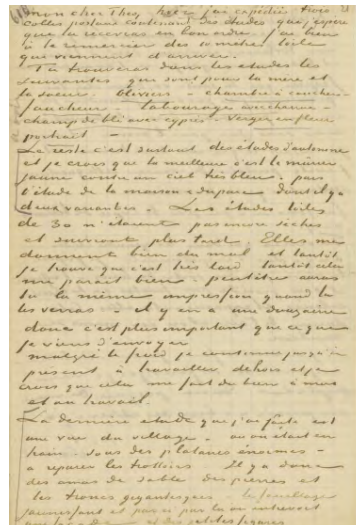 mon cher Theo, hier j'ai expédié trois
collis postaux contenant des études que j'espère
que tu recevras en bon ordre. J'ai bien
à te remercier des 10 mètres toile
qui viennent d'arriver.
Tu trouveras dans les études les
suivantes qui sont pour la mère et
la soeur. Oliviers – chambre à coucher –
faucheur – labourage avec charrue –
champ de blé avec cyprès – verger en fleur
portrait –
Le reste c'est surtout des études d'automne
et je crois que la meilleure c'est le murier
jaune contre un ciel très bleu. puis
l'étude de la maison & du parc dont il y a
deux variantes. Les études toiles
de 30 n'étaient pas encore sèches
et suivront plus tard. Elles me
donnent bien du mal et tantôt
je trouve que c'est très laid tantôt cela
me parait bien – peutêtre auras
tu la même impression quand tu
les verras – il y en a une douzaine
donc c'est plus important que ce que
je viens d'envoyer
malgré le froid je continue jusqu'à
présent à travailler dehors et je
crois que cela me fait du bien à moi
et au travail.
La dernière étude que j'ai faite est
une vue du village – où on était en
train – sous des platanes énormes –
à reparer les trottoirs Il y a donc
des amas de sable des pierres et
les troncs gigantesques – le feuillage
jaunissant et par ci par là on entrevoit
et des petites figures